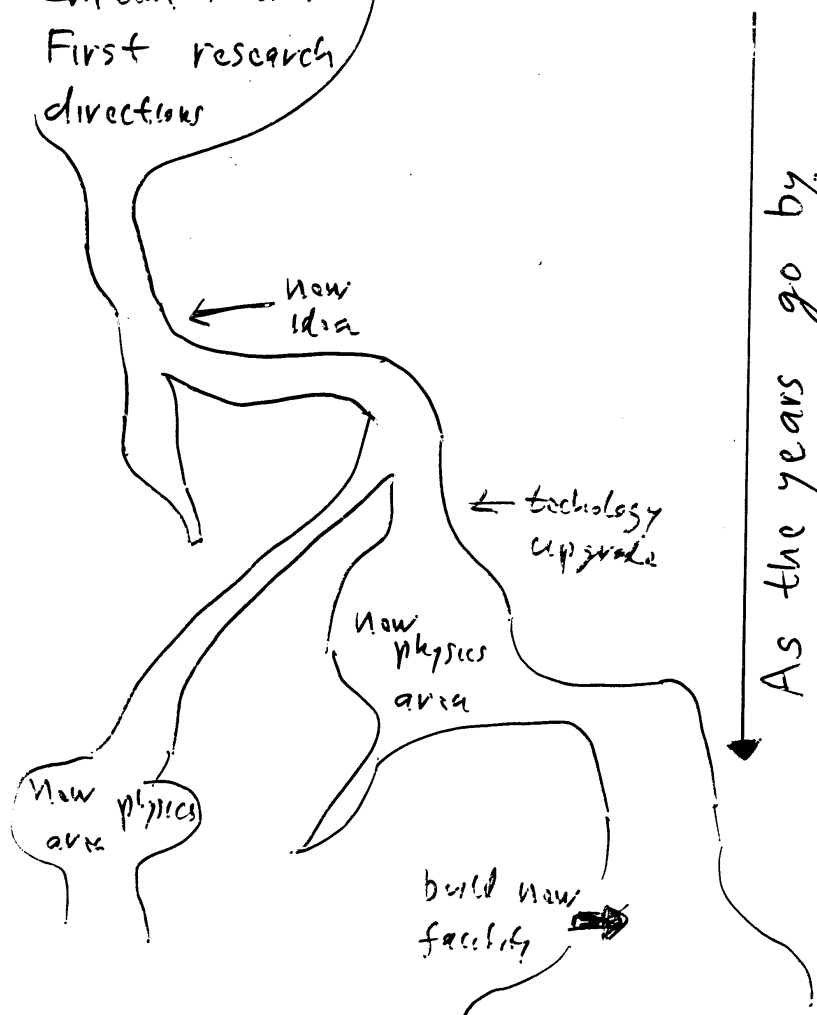 First research
directions
new
idea
technology
upgrade
new
physics
area
new physics
area
build new
facility
As the years go by